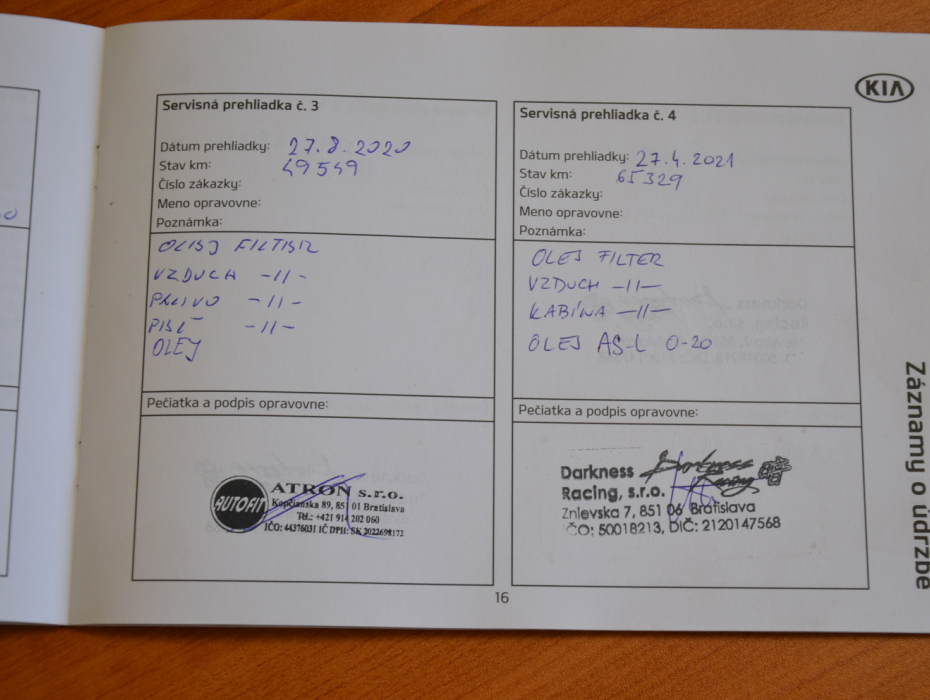 KIA
Servisná prehliadka č. 3
Dátum prehliadky: 27.8.2020
Stav km: 49549
Číslo zákazky:
Meno opravovne:
Poznámka:
OLEJ FILTER
VZDUCH -11-
PALIVO -11-
PEĽ -11-
OLEJ
Pečiatka a podpis opravovne:
AUTOFIT
ATRON s.r.o.
Kopčianska 89, 851 01 Bratislava
Tel.: +421 914 202 060
IČO: 44376031 IČ DPH: SK 2022698172
Servisná prehliadka č. 4
Dátum prehliadky: 27.4.2021
Stav km: 65329
Číslo zákazky:
Meno opravovne:
Poznámka:
OLEJ FILTER
VZDUCH -11-
KABÍNA -11-
OLEJ AS-L 0-20
Pečiatka a podpis opravovne:
Darkness Darkness
Racing, s.r.o. Racing
Znievska 7, 851 06 Bratislava
IČO: 50018213, DIČ: 2120147568
Záznamy o údržbe
16